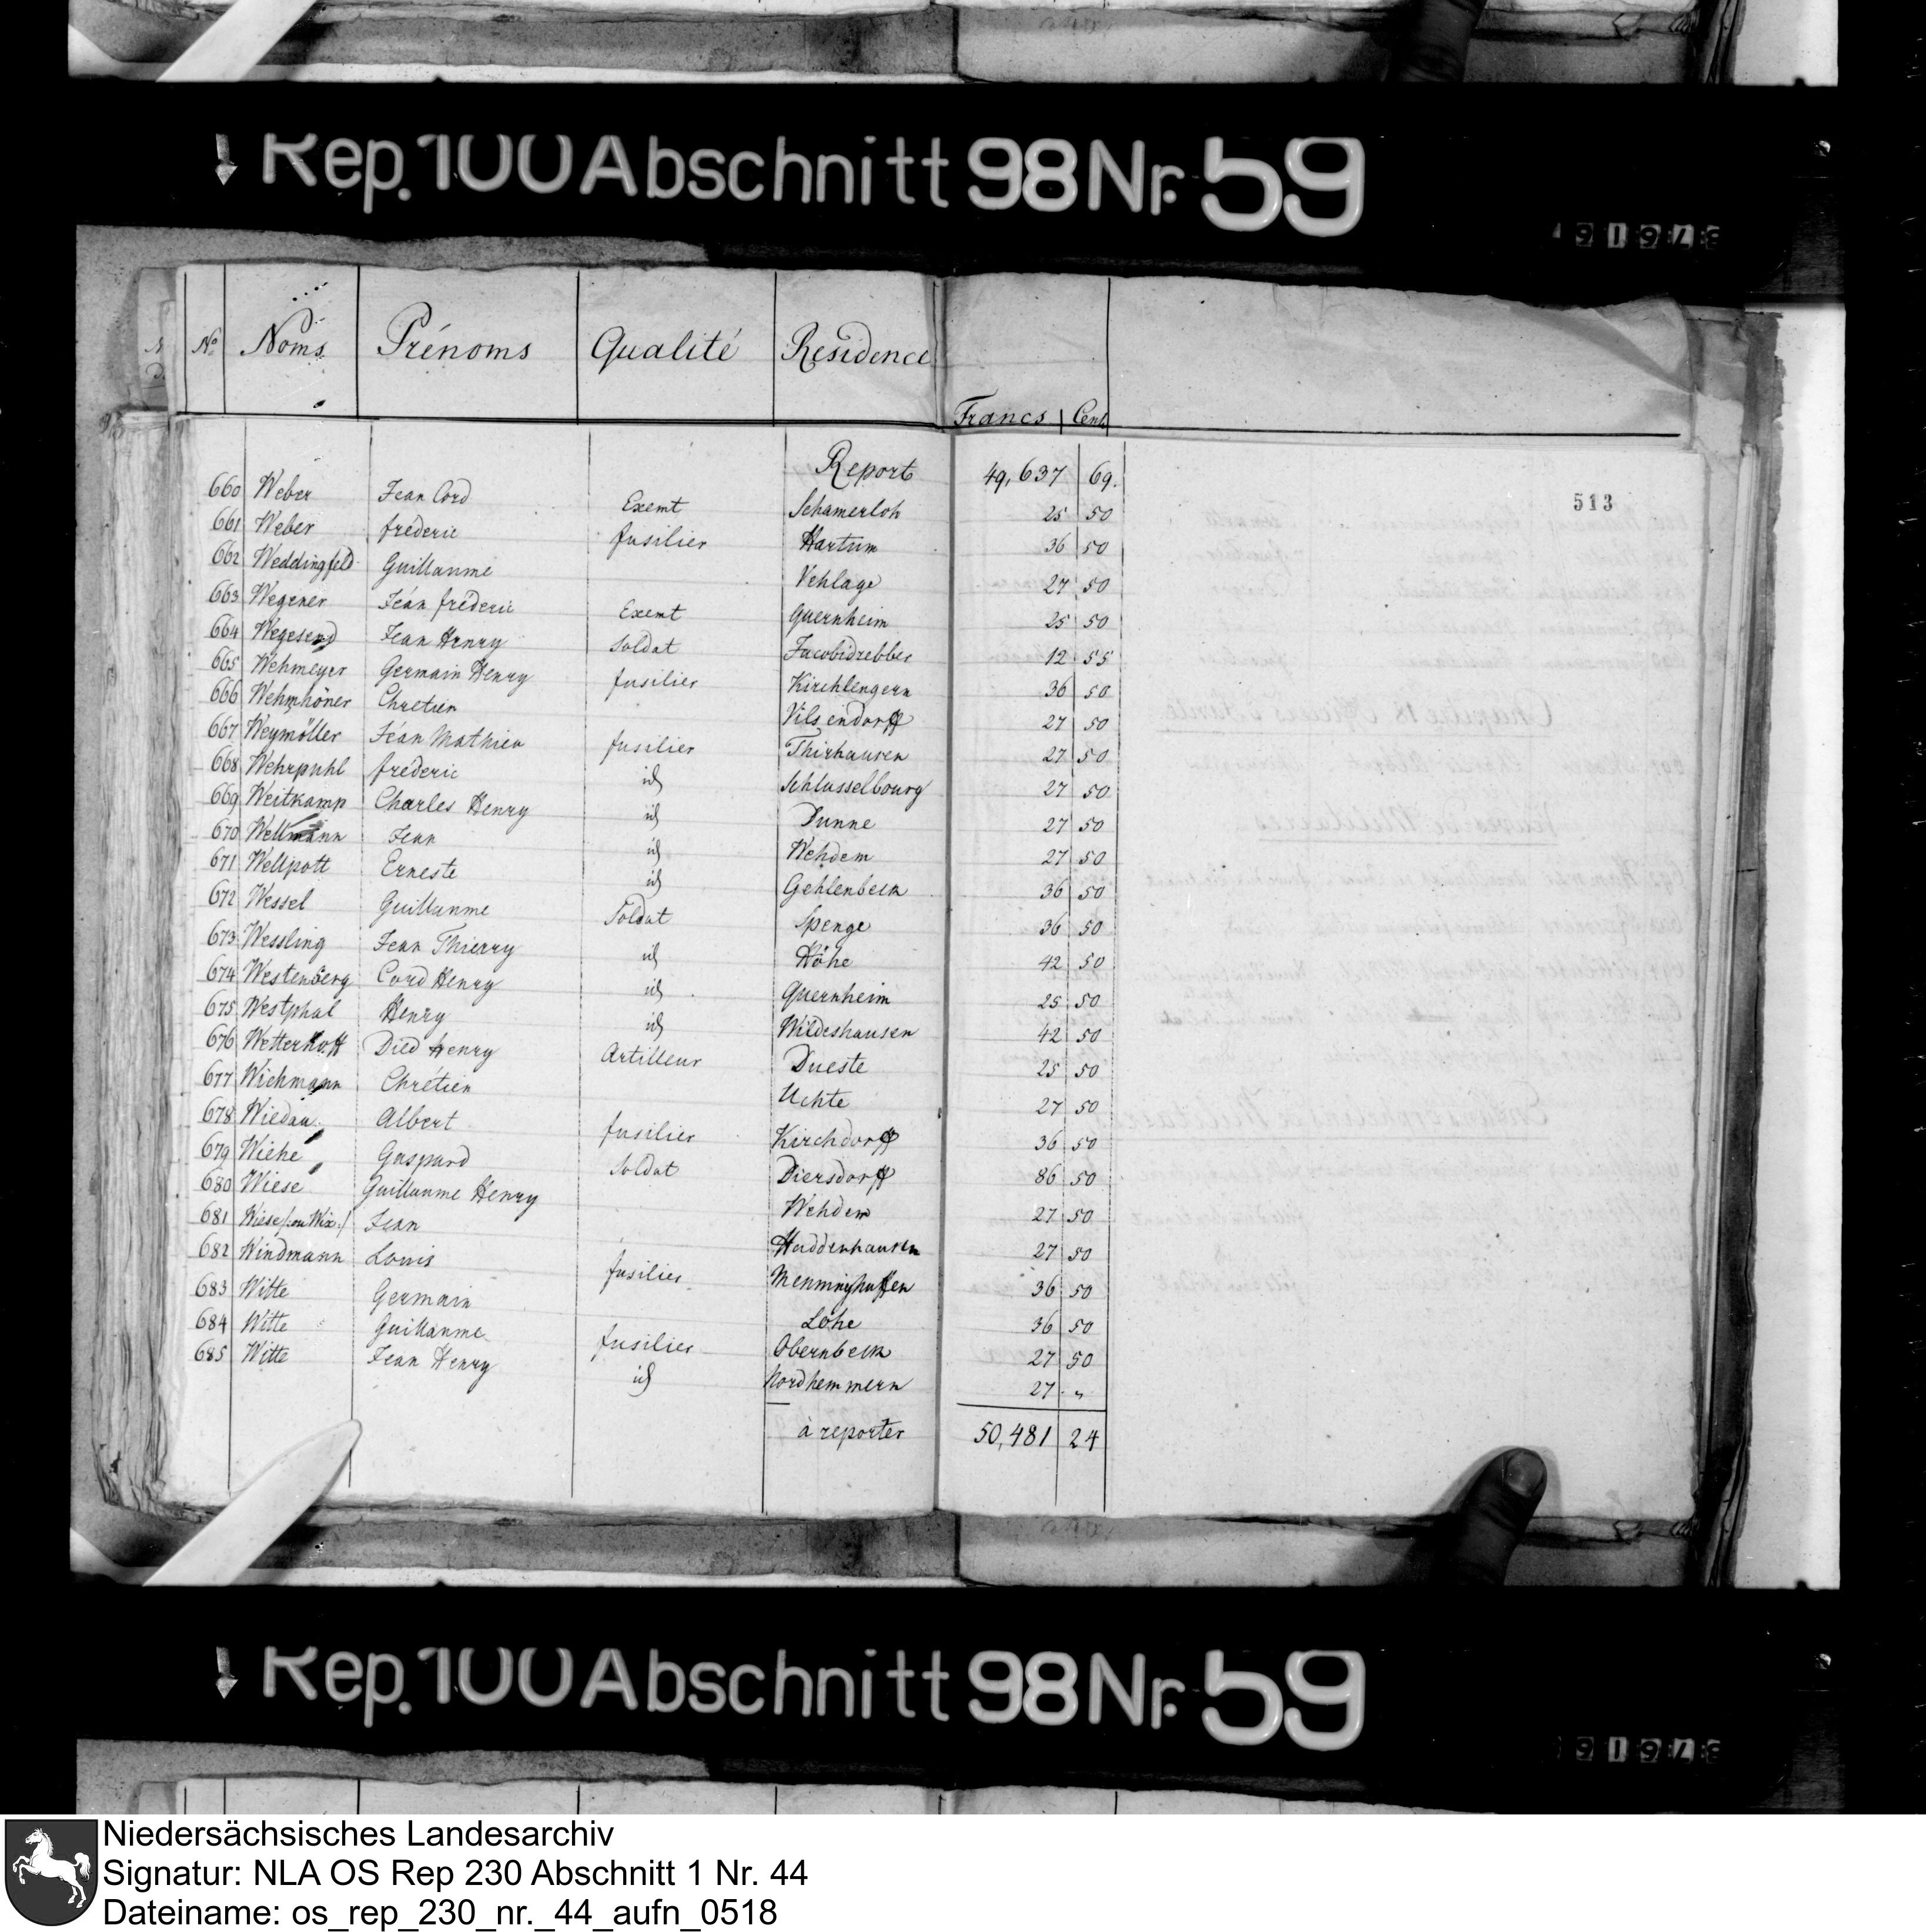 Rep. 100 Abschnitt 98 Nr. 59
No Noms Prénoms Qualité Residence Francs Cent.
Report 49,637 69.
513
660 Weber Jean Cord Exemt Schamerloh 25 50
661 Weber frédéric fusilier Hartum 36 50
662 Weddingfeld Guillaume Vehlage 27 50
663 Wegener Jéan fréderic Exemt Quernheim 25 50
664 Wegesend Jean Henry Soldat Jacobidrebber 12 55
665 Wehmeyer Germain Henry fusilier Kirchlengern 36 50
666 Wehmhöner Chretien Vilsendorff 27 50
667 Weymöller Jéan Mathieu fusilier Thirhausen 27 50
668 Wehrpuhl frederic id Schlusselbourg 27 50
669 Weitkamp Charles Henry id Dunne 27 50
670 Wellmann Jean id Wehdem 27 50
671 Wellpott Erneste id Gehlenbeck 36 50
672 Wessel Guillaume Soldat Spenge 36 50
673 Wessling Jean Thierry id Höhe 42 50
674 Westenberg Cord Henry id Quernheim 25 50
675 Westphal Henry id Wildeshausen 42 50
676 Wetterhoff Died Henry Artilleur Dueste 25 50
677 Wichmann Chrétien Uchte 27 50
678 Wiedau Albert fusilier Kirchdorff 36 50
679 Wiehe Gaspard Soldat Diersdorff 86 50
680 Wiese Guillaume Henry Wehdem 27 50
681 Wiese /:ou Wix:/ Jean Haddenhausen 27 50
682 Windmann Louis fusilier Mennninghuffen 36 50
683 Witte Germain Löhe 36 50
684 Witte Guillaume fusilier Obernbeck 27 50
685 Witte Jean Henry id Nordhemmern 27 „
à reporter 50,481 24
Rep. 100 Abschnitt 98 Nr. 59
Niedersächsisches Landesarchiv
Signatur: NLA OS Rep 230 Abschnitt 1 Nr. 44
Dateiname: os_rep_230_nr._44_aufn_0518